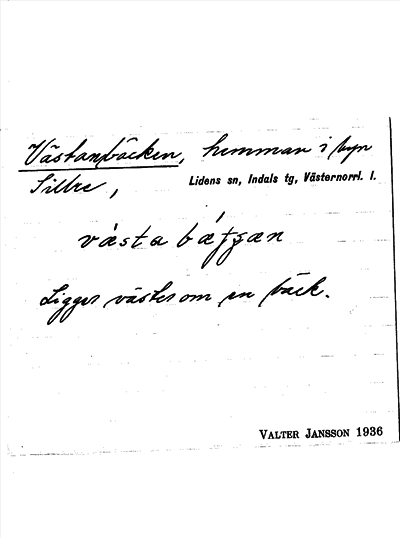 Västanbäcken, hemman i byn
Sillre,
Lidens sn, Indals tg, Västernorrl. l.
västa bæ
Ligger väster om en bäck.
VALTER JANSSON 1936